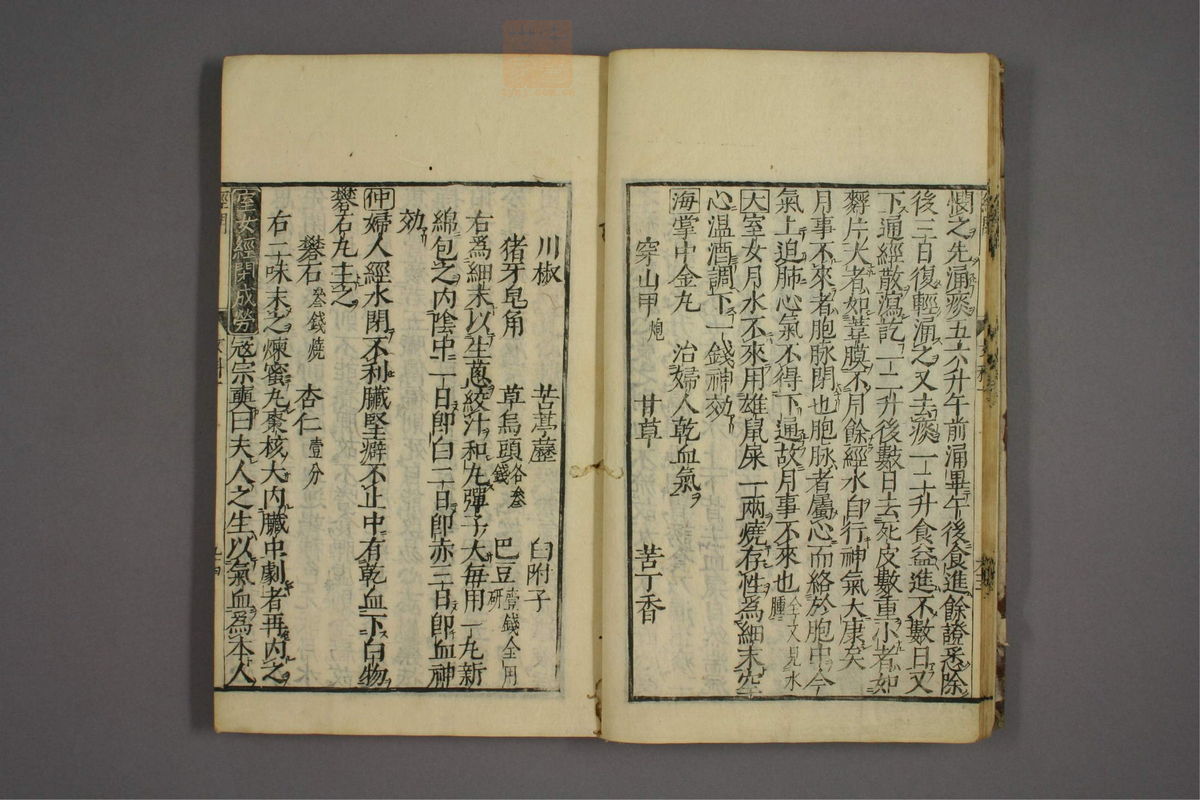 懊之先涌痰五六升午前涌畢午後食進餘證悉除
後三百復輕涌之又去痰一二升食益進不數日又
下通經散瀉訖一二升後數日去死皮數重小者如
麸片大者如葦膜不月餘經水自行神氣大康矣
月事不來者胞脉閉也胞脉者屬心而絡於胞中今
氣上迫肺心氣不得下通故月事不來也全又見水腫
大室女月水不來用雄鼠屎一兩燒存性爲細末空
心温酒調下一錢神効
海掌中金丸 治婦人乾血氣
穿山甲炮 甘草 苦丁香
川椒 苦葶藶 白附子
猪牙皂角 草烏頭各叁錢 巴豆壹錢全用研
右爲細末以生蔥絞汁和丸彈子大每用一丸新
綿包之内陰中一日即白二日即赤三日即血神
効
仲婦人經水閉不利臟堅癖不止中有乾血下白物
礬石丸主之
礬石叁錢燒 杏仁壹分
右二味末之煉蜜丸棗核大内臟中劇者再内之
室女經閉成勞寇宗奭曰夫人之生以氣血爲本人